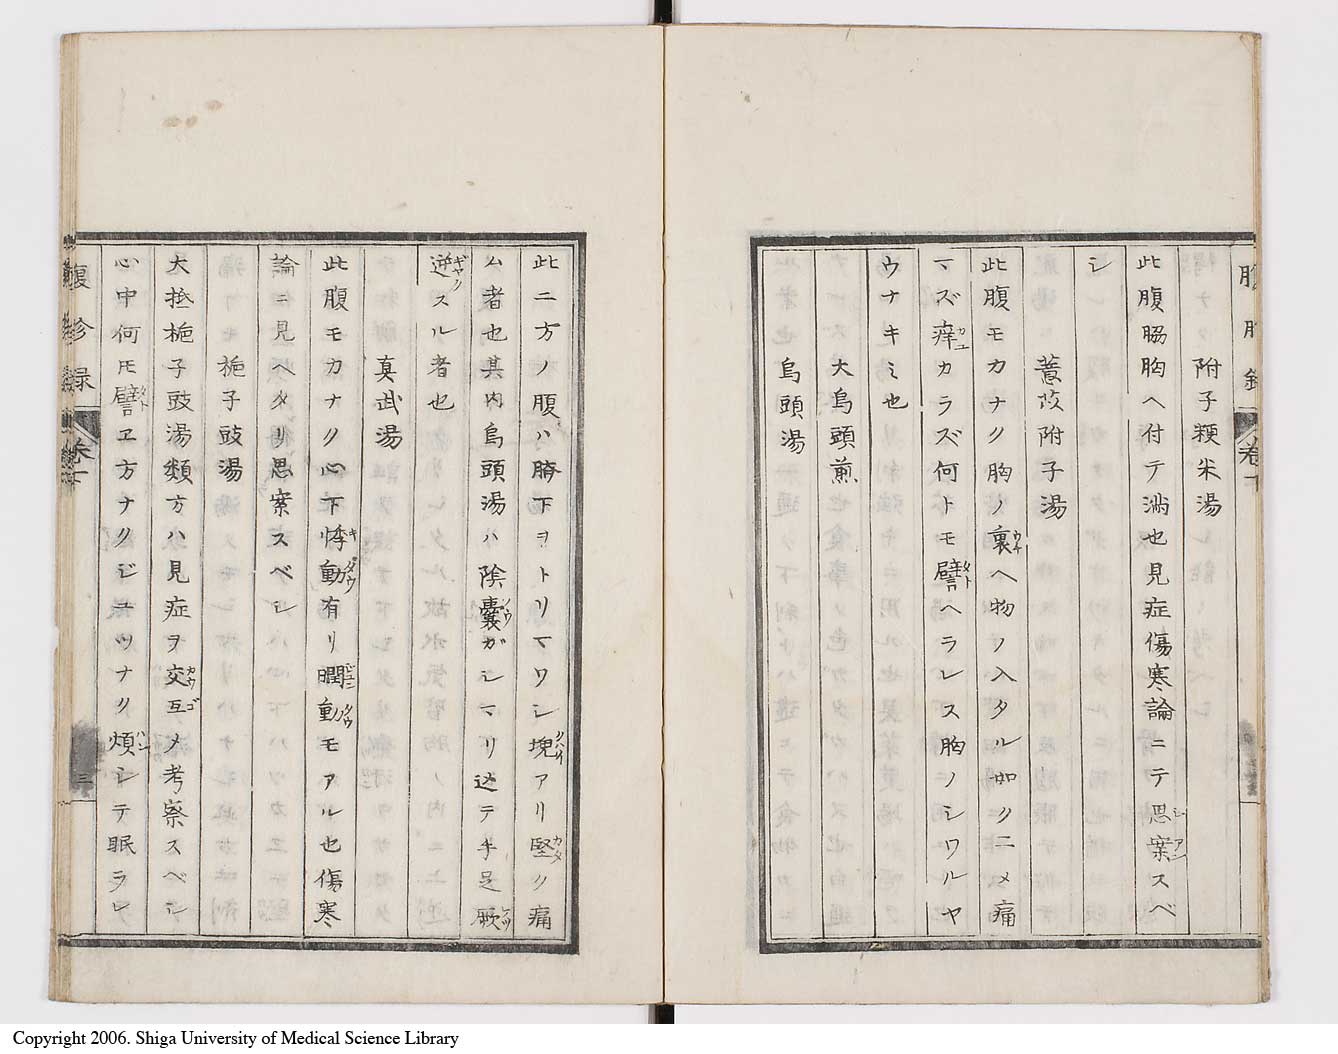 附子粳米湯
此腹脇胸ヘ付テ満也見症傷寒論ニテ思案スベ
シ
薏苡附子湯
此腹モカナク胸ノ裏ヘ物ノ入タル如クニメ痛
マズ痒カラズ何トモ譬ヘラレス胸ノシワルヤ
ウナキミ也
大烏頭煎
烏頭湯
此二方ノ腹ハ臍下ヲトリマワシ塊アリ堅ク痛
ム者也其内烏頭湯ハ陰嚢ガシマリ迯テ手足厥
逆スル者也
真武湯
此腹モカナク心下悸動有リ瞤動モアル也傷寒
論ニ見ヘタリ思案スベシ
梔子豉湯
大抵梔子豉湯類方ハ見症ヲ交互メ考察スベシ
心中何トモ譬ヱ方ナクジユツナク煩シテ眠ラレ
腹診録 巻下 三
Copyright 2006. Shiga University of Medical Science Library